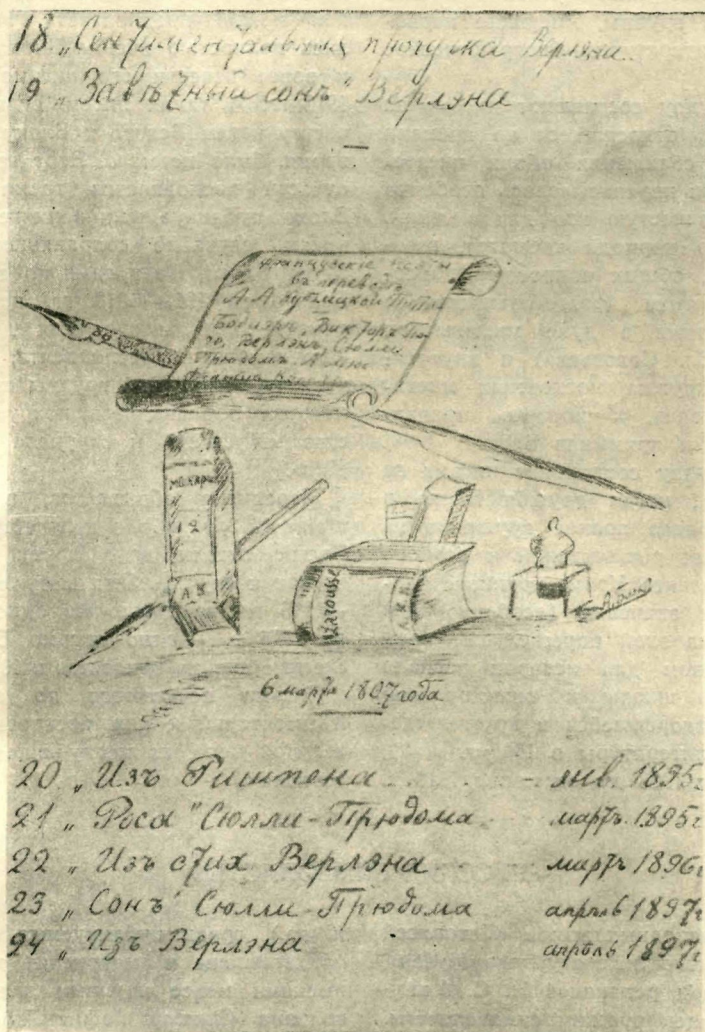 18 „Сентиментальная прогулка Верлэна.
19 „Завѣтный сонъ" Верлэна
французскіе поэты
въ переводѣ
А. А. Кублицкой
Бодлэръ, Викторъ Гю-
го, Верлэнъ, Сюлли
Прюдомъ, А. Мюс
Франсуа
89
12
А. К.
Larousse
А. К. П.
А. Блок
6 марта 1897 года
20 „Изъ Ришпена янв. 1895 г
21 „Роса" Сюлли-Прюдома мартъ 1895 г
22 „Изъ стих Верлэна мартъ 1896 г
23 „Сонъ" Сюлли-Прюдома апрѣль 1897 г
24 „Изъ Верлэна апрѣль 1897 г